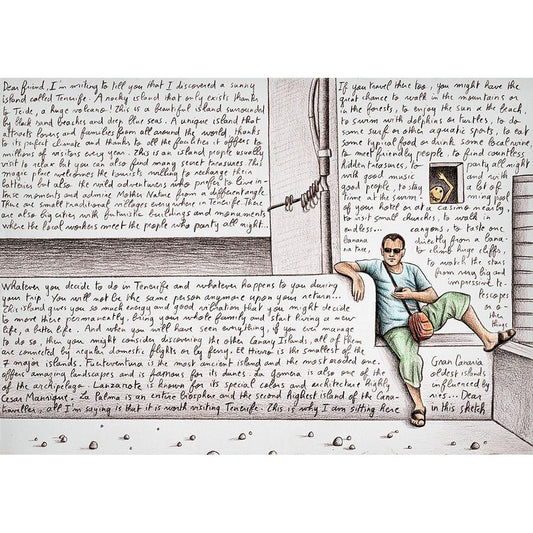 Dear friend, I'm writing to tell you that I discovered a sunny
island called Tenerife. A rocky island that only exists thanks
to Teide, a huge volcano! This is a beautiful island surrounded
by black sand beaches and deep blue seas. A unique island that
attracts lovers and families from all around the world thanks
to its perfect climate and thanks to all the facilities it offers to
millions of visitors every year. This is an island people usually
visit to relax but you can also find many secret treasures. This
magic place welcomes the tourists willing to recharge their
batteries but also the wild adventurers who prefer to live in-
tense moments and admire Mother Nature from a different angle.
There are small traditional villages everywhere in Tenerife. There
are also big cities with futuristic buildings and monuments
where the local workers meet the people who party all night...
If you travel there too, you might have the
great chance to walk in the mountains or
in the forests, to enjoy the sun at the beach,
to swim with dolphins or turtles, to do
some surf or other aquatic sports, to eat
some typical food or drink some local wine,
to meet friendly people, to find countless
hidden treasures, to party all night
with good music and with
good people, to stay a lot of
time at the swim- ming pool
of your hotel or at a casino nearby,
to visit small churches, to walk in
endless... canyons, to taste one
banana directly from a bana-
na tree, to climb huge cliffs,
to watch the stars
from very big and
impressive te-
lescopes or do
other things
Whatever you decide to do in Tenerife and whatever happens to you during
your trip. You will not be the same person anymore upon your return...
This island gives you so much energy and good vibration that you might decide
to move there permanently, bring your whole family and start living a new
life, a better life... And when you will have seen everything, if you ever manage
to do so, then you might consider discovering the other Canary Islands, all of them
are connected by regular domestic flights or by ferry. El Hierro is the smallest of the
7 major islands. Fuerteventura is the most ancient island and the most eroded one. Gran Canaria
offers amazing landscapes and is famous for its dunes. La Gomera is also one of the oldest islands
of the archipelago. Lanzarote is known for its special colors and architecture highly influenced by
Cesar Manrique. La Palma is an entire biosphere and the second highest island of the Cana- ries... Dear
traveller, all I'm saying is that it is worth visiting Tenerife. This is why I am sitting here in this sketch